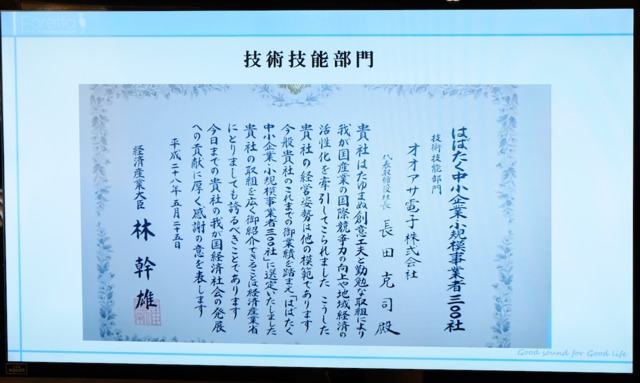 Faretta
技術技能部門
はばたく中小企業・小規模事業者三〇〇社
技術技能部門
オオアサ電子株式会社
代表取締役社長 長田克司 殿
貴社はたゆまぬ創意工夫と勤勉な取組により
我が国産業の国際競争力の向上や地域経済の
活性化を牽引してこられました こうした
貴社の経営姿勢は他の模範であります
今般貴社のこれまでの御業績を踏まえ「はばたく
中小企業・小規模事業者三〇〇社」に選定いたしました
貴社の取組を広く御紹介できることは経済産業省
にとりましても誇るべきことであります
今日までの貴社の我が国経済社会の発展
への貢献に厚く感謝の意を表します
平成二十八年五月二十五日
経済産業大臣 林 幹雄
Good sound for Good Life